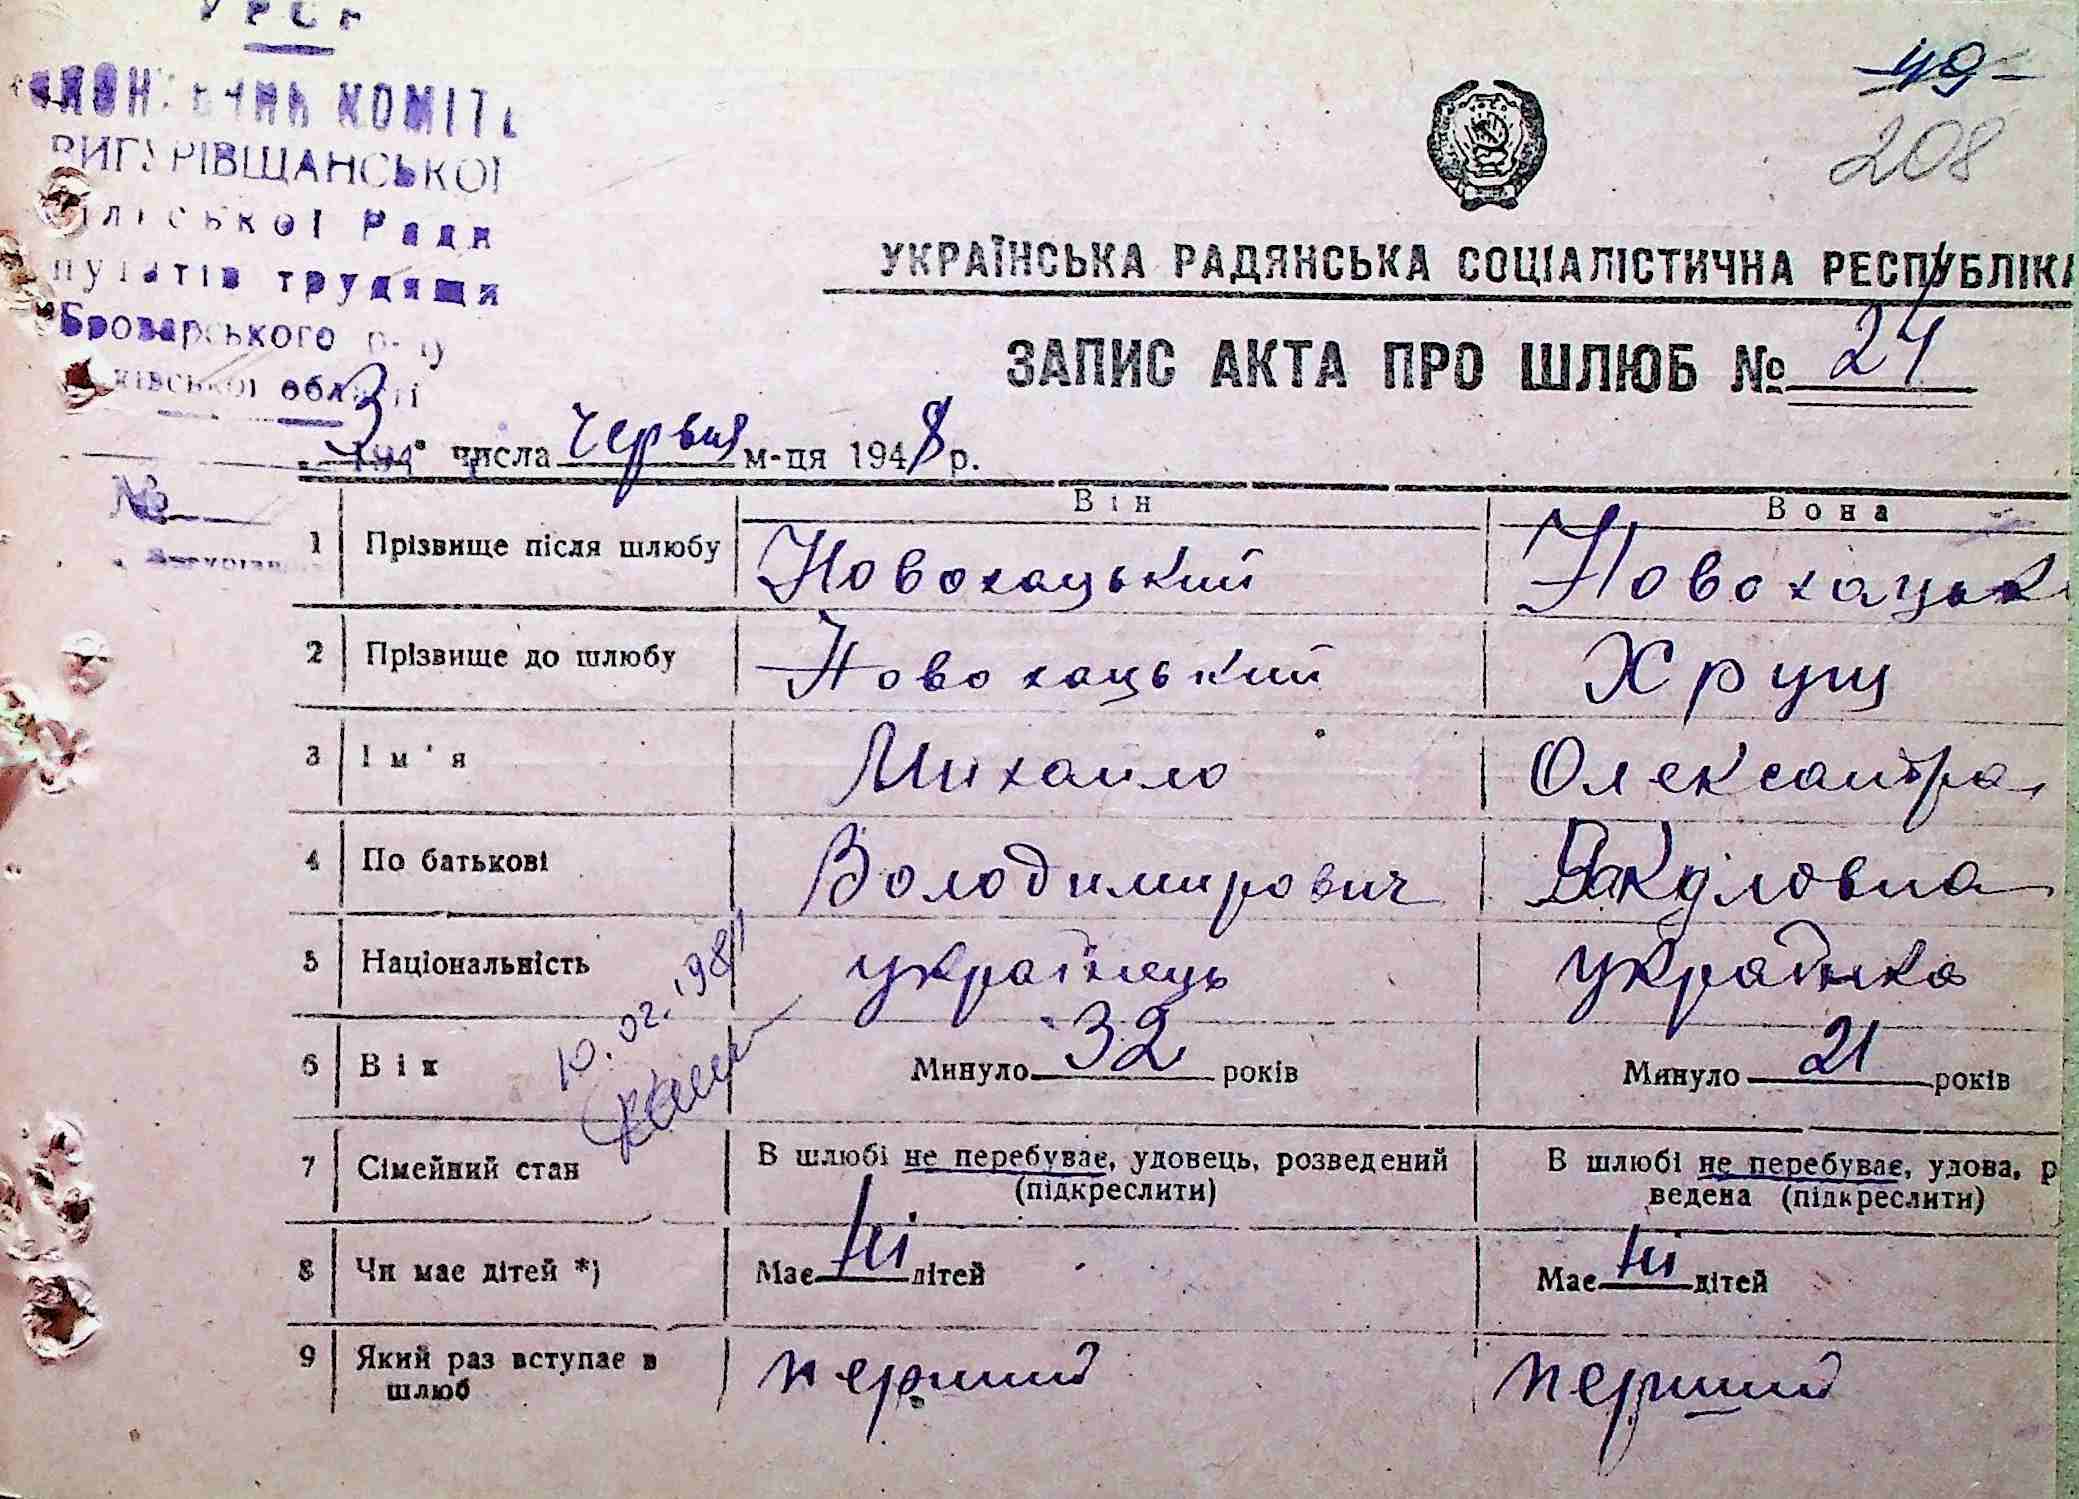 УРСР
КОМІТ
ВИГУРІВЩАНСЬКОЇ
Ради
путатів трудящи
Броварського р-ну
ківської області
№
-49-
208
УКРАЇНСЬКА РАДЯНСЬКА СОЦІАЛІСТИЧНА РЕСПУБЛІКА
ЗАПИС АКТА ПРО ШЛЮБ № 24
3 числа червня м-ця 1948 р.
Він Вона
1 Прізвище після шлюбу Новохацький Новохацьк
2 Прізвище до шлюбу Новохацький Хрущ
3 Ім'я Михайло Олександра
4 По батькові Володимирович Вакуловна
5 Національність українець українка
10.02.198
6 Вік Минуло 32 років Минуло 21 років
7 Сімейний стан В шлюбі не перебуває, удовець, розведений В шлюбі не перебуває, удова, р
(підкреслити) ведена (підкреслити)
8 Чи має дітей *) Має ні дітей Має ні дітей
9 Який раз вступає в перший перший
шлюб